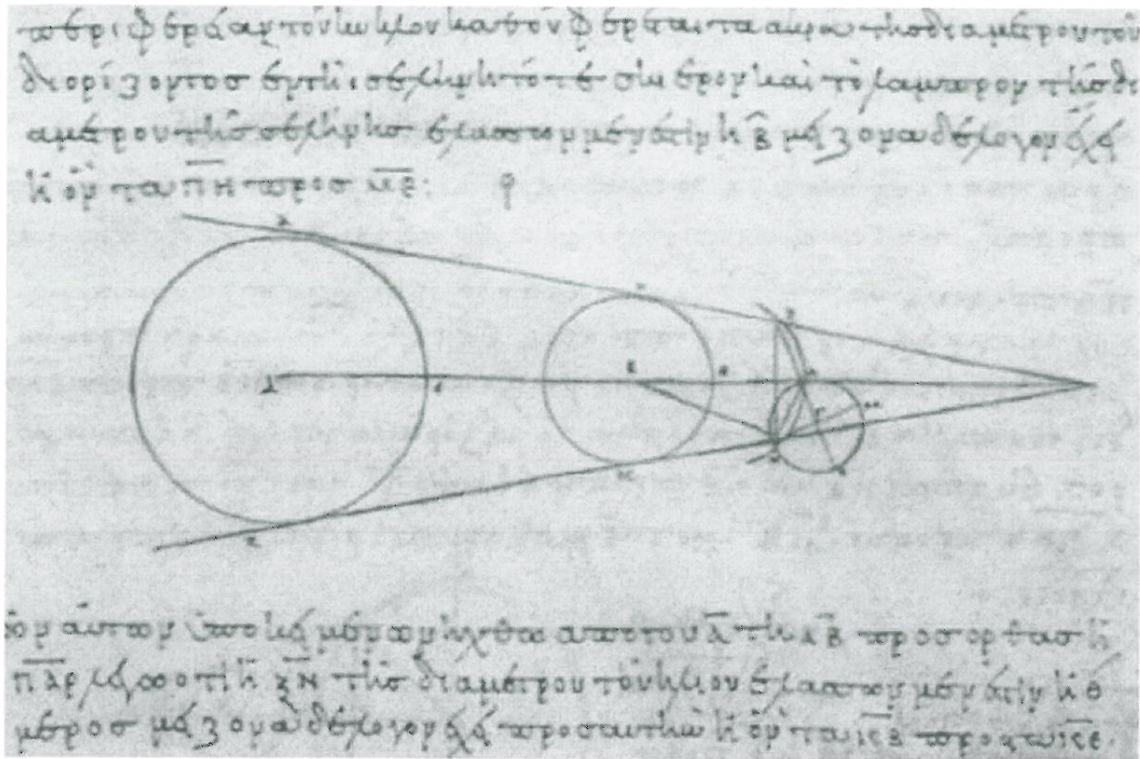 περιφέρειαν τὸν κύκλον καθ ὃν φέρεται τα ακρα τῆσ διαμέτρου τοῦ
διορίζοντοσ ἐν τῆι σελήνηι τό τε σκιερὸν καὶ τὸ λαμπρον τῆσ δι
αμέτρου τῆσ σελήνησ ἐλάσσων μέν ἐστιν ἢ β̄ μείζονα δὲ λόγον ἔχει
ἢ ὃν τα π̄η̄ προσ μ̄ε̄
αὐτων ὑποκειμένων ἤχθω απο του λ̄ τῆι λ̄β̄ προσ ορθασ ἡ
π̄λ̄ρ̄ λέγω οτι ἡ ξ̄ν̄ τῆσ διαμέτρου τοῦ ἡλίου ἐλάσσων μέν ἐστιν ἢ θ
μέροσ μείζονα δὲ λόγον ἔχει προσ αυτὴν ἢ ὃν τα προσ